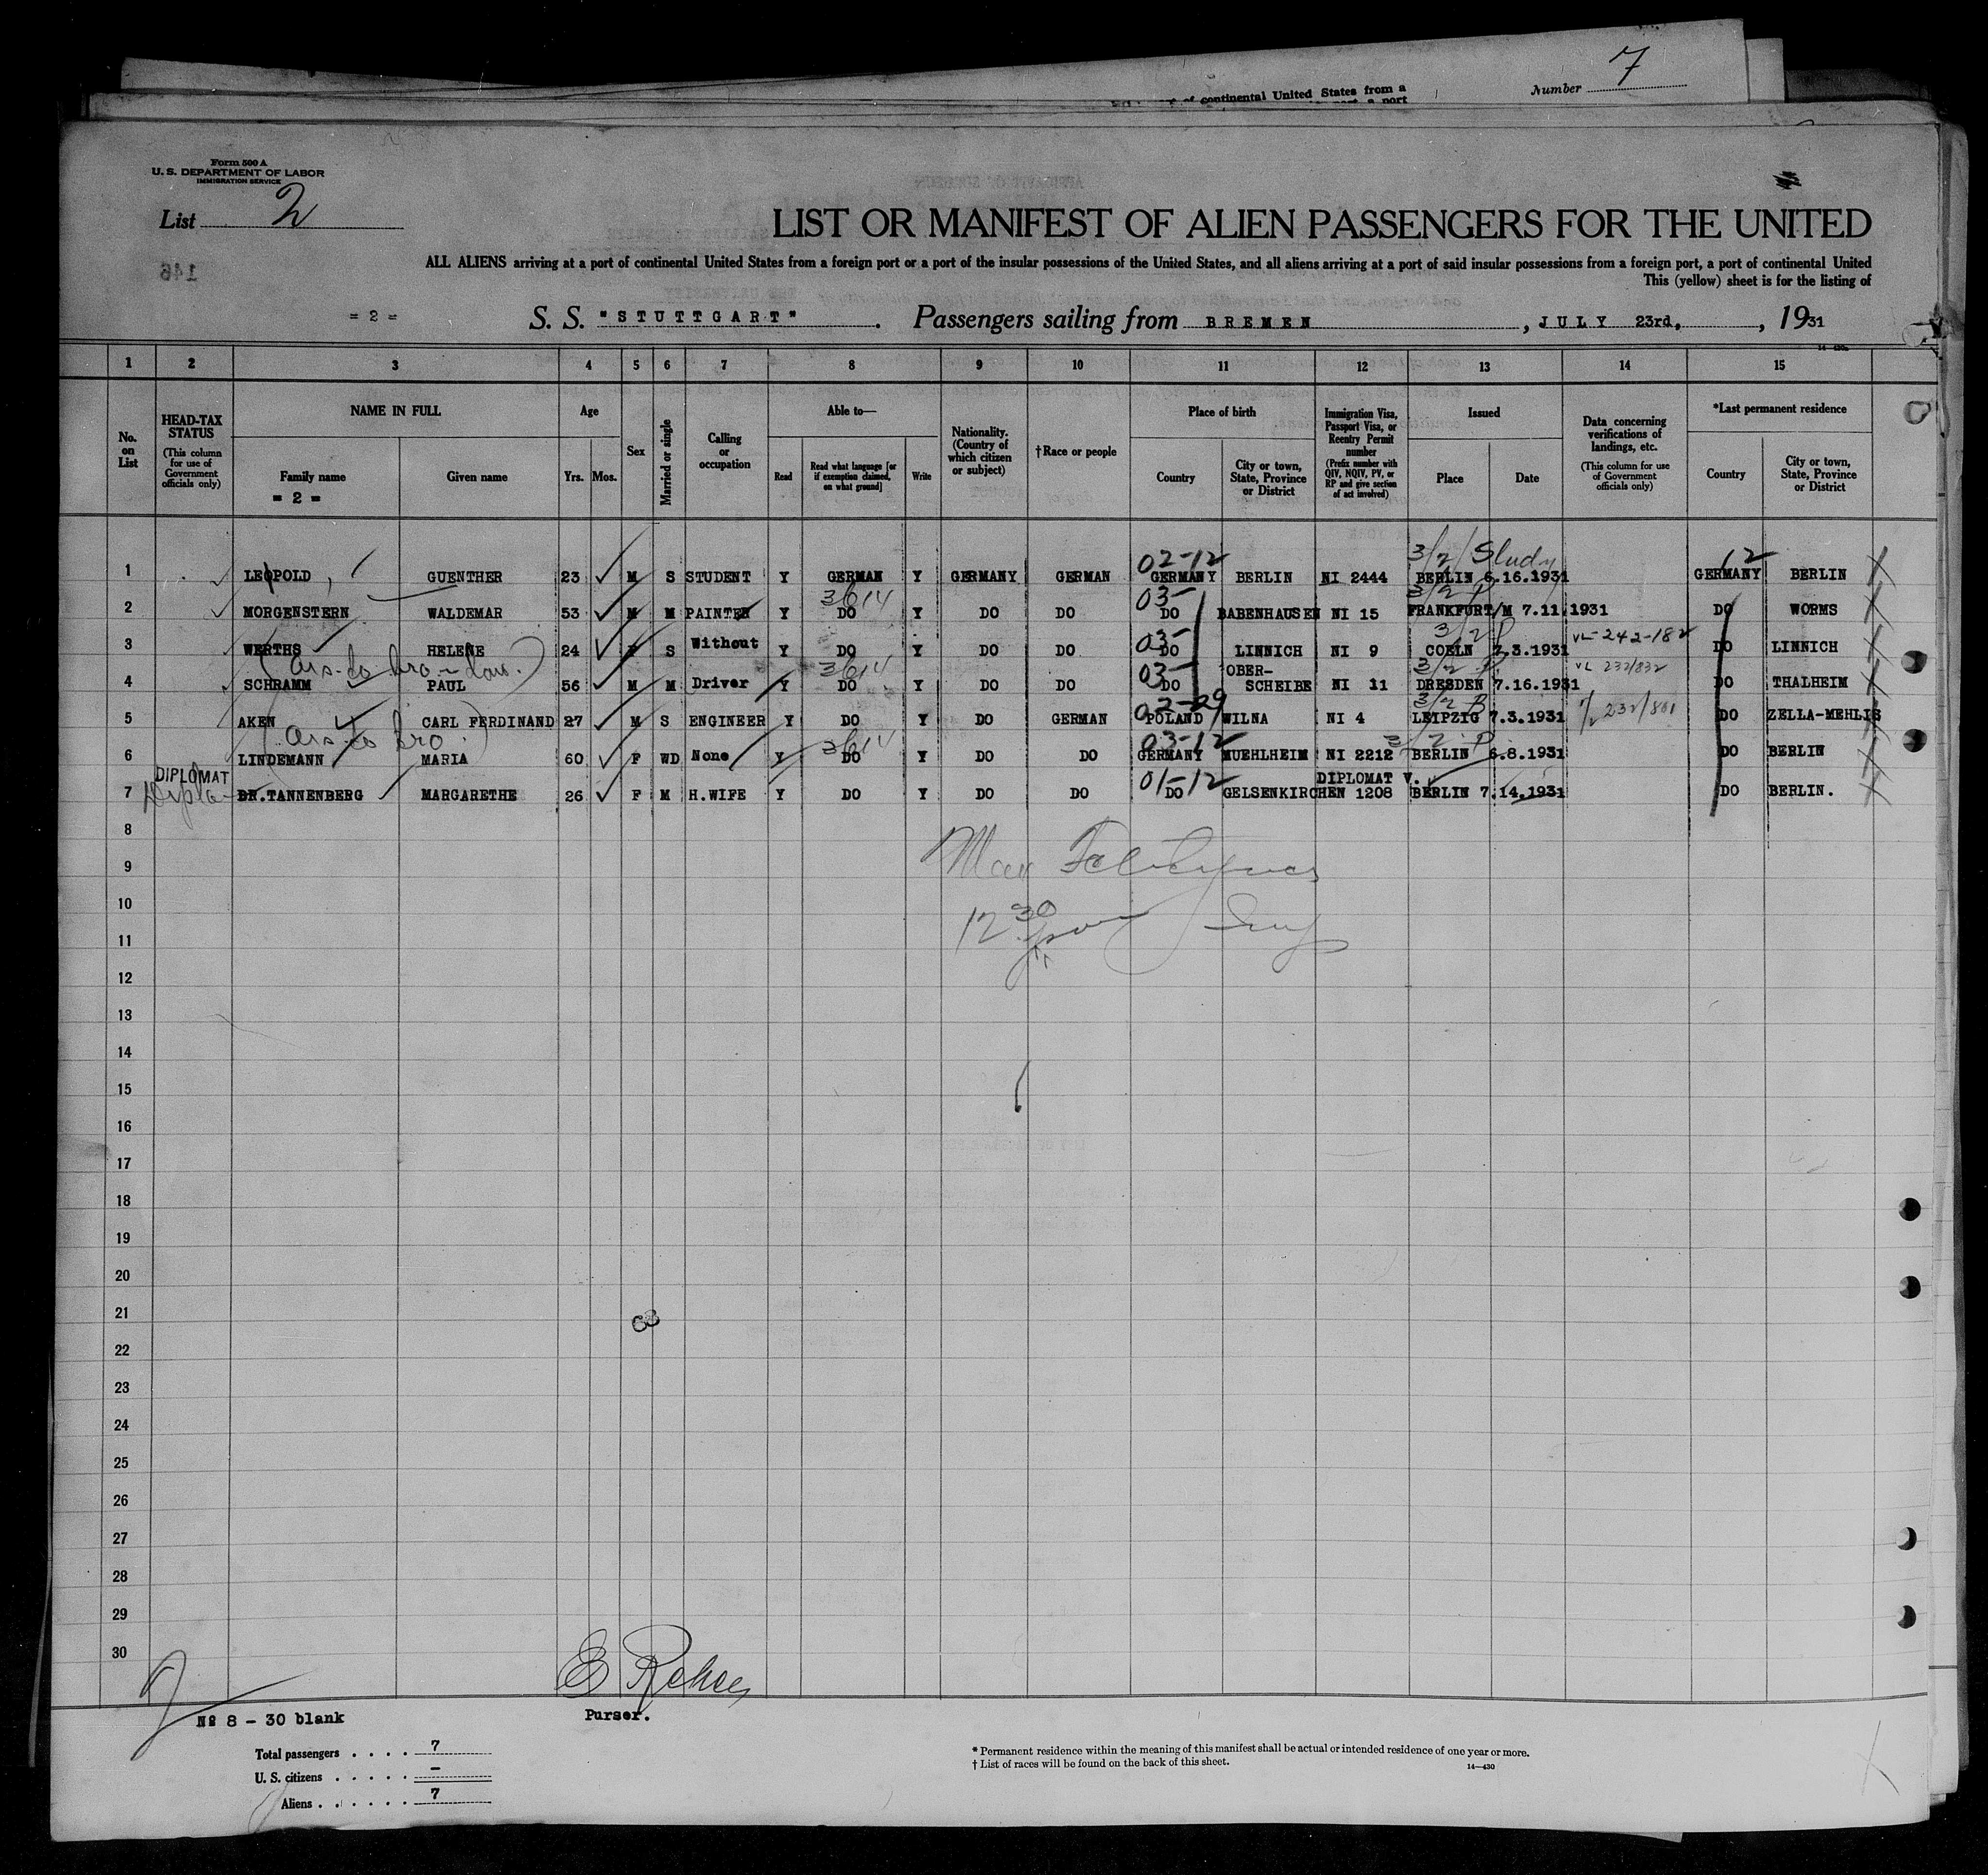 Number 7
of continental United States from a
Form 500 A
U. S. DEPARTMENT OF LABOR
IMMIGRATION SERVICE
List 2
LIST OR MANIFEST OF ALIEN PASSENGERS FOR THE UNITED
ALL ALIENS arriving at a port of continental United States from a foreign port or a port of the insular possessions of the United States, and all aliens arriving at a port of said insular possessions from a foreign port, a port of continental United
This (yellow) sheet is for the listing of
146
= 2 = S. S. "STUTTGART". Passengers sailing from BREMEN, JULY 23rd, , 1931
1 2 3 4 5 6 7 8 9 10 11 12 13 14 15
No. on List
HEAD-TAX STATUS
(This column for use of Government officials only)
NAME IN FULL
Family name
= 2 =
Given name
Age
Yrs. Mos.
Sex
Married or single
Calling or occupation
Able to—
Read
Read what language [or if exemption claimed, on what ground]
Write
Nationality. (Country of which citizen or subject)
†Race or people
Place of birth
Country
City or town, State, Province or District
Immigration Visa, Passport Visa, or Reentry Permit number
(Prefix number with QIV, NQIV, PV, or RP and give section of act involved)
Issued
Place
Date
Data concerning verifications of landings, etc.
(This column for use of Government officials only)
*Last permanent residence
Country
City or town, State, Province or District
02-12 3/2/ Study 12
1 LEOPOLD, GUENTHER 23 M S STUDENT Y GERMAN Y GERMANY GERMAN GERMANY BERLIN NI 2444 BERLIN 6.16.1931 GERMANY BERLIN
3614 03- 3/2 P
2 MORGENSTERN WALDEMAR 53 M M PAINTER Y DO Y DO DO DO BABENHAUSEN NI 15 FRANKFURT/M 7.11.1931 DO WORMS
03- 3/2 P VL-242-182
3 WERTHS HELENE 24 F S Without Y DO Y DO DO DO LINNICH NI 9 COELN 7.3.1931 DO LINNICH
3614 03- OBER- 3/2 P VL 232/832
4 SCHRAMM PAUL 56 M M Driver Y DO Y DO DO DO SCHEIBE NI 11 DRESDEN 7.16.1931 DO THALHEIM
02-29 3/2 P 232/801
5 AKEN CARL FERDINAND 27 M S ENGINEER Y DO Y DO GERMAN POLAND WILNA NI 4 LEIPZIG 7.3.1931 DO ZELLA-MEHLIS
3614 03-12 3/2 P
6 LINDEMANN MARIA 60 F WD None Y DO Y DO DO GERMANY MUEHLHEIM NI 2212 BERLIN 6.8.1931 DO BERLIN
DIPLOMAT 01-12 DIPLOMAT V.
7 DR.TANNENBERG MARGARETHE 26 F M H.WIFE Y DO Y DO DO DO GELSENKIRCHEN 1208 BERLIN 7.14.1931 DO BERLIN.
8
9
10
12 30
11
12
13
14
15
16
17
18
19
20
21
22
23
24
25
26
27
28
29
30
Purser.
№ 8 - 30 blank
Total passengers . . . . 7
U. S. citizens . . . . . -
Aliens . . . . . . 7
* Permanent residence within the meaning of this manifest shall be actual or intended residence of one year or more.
† List of races will be found on the back of this sheet.
14—430